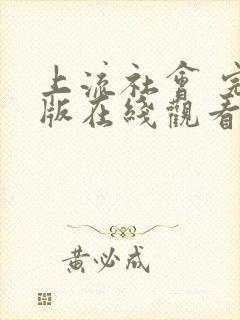 上流社會 完
版在綫觀看
黃必成